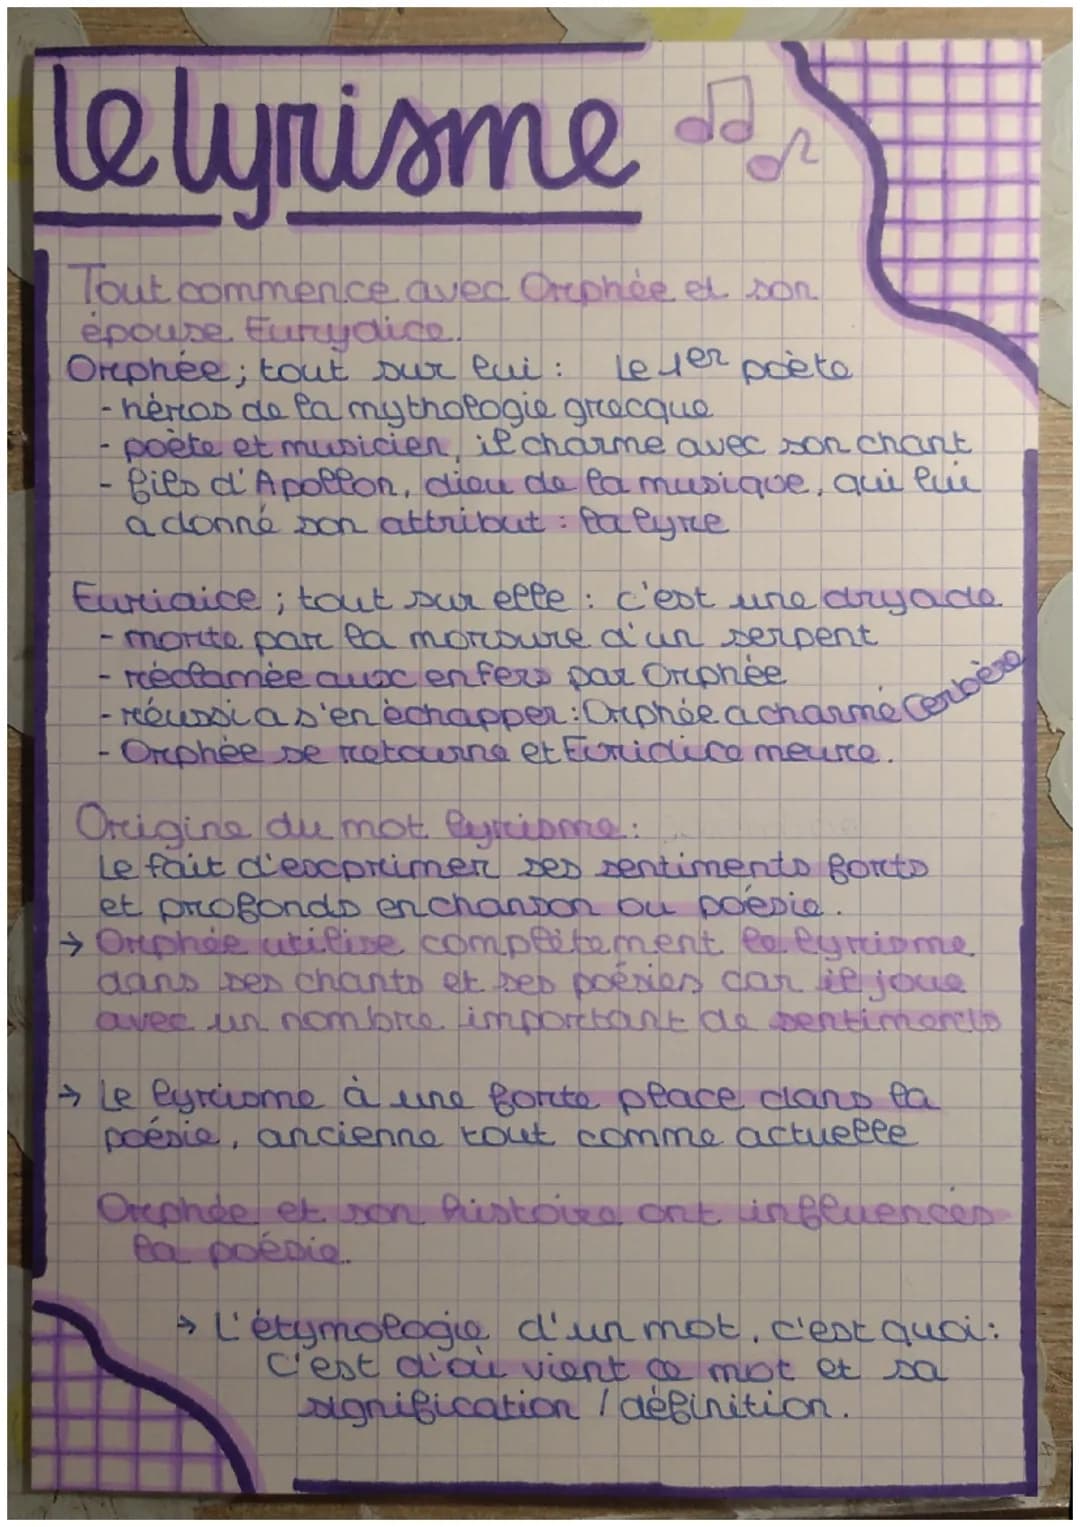 le lyrisme
Tout commence avec Orphée et son
épouse Eurydice.
Orphée ; tout sur lui : le 1er poète
- héros de la mythologie grecque
- poète et musicien, il charme avec son chant
- fils d'Apollon, dieu de la musique, qui lui
a donné son attribut : la lyre
Euridice ; tout sur elle : c'est une dryade
- morte par la morsure d'un serpent
- réclamée aux enfers par Orphée
- réussi a s'en échapper : Orphée a charmé Cerbère
- Orphée se retourne et Euridice meure.
Origine du mot lyrisme :
Le fait d'exprimer ses sentiments forts
et profonds en chanson ou poésie.
→ Orphée utilise complètement le lyrisme
dans ses chants et ses poésies car il joue
avec un nombre important de sentiments
→ Le lyrisme à une forte place dans la
poésie, ancienne tout comme actuelle
Orphée et son histoire ont influencés
la poésie.
→ L'étymologie d'un mot, c'est quoi :
C'est d'où vient ce mot et sa
signification / définition.